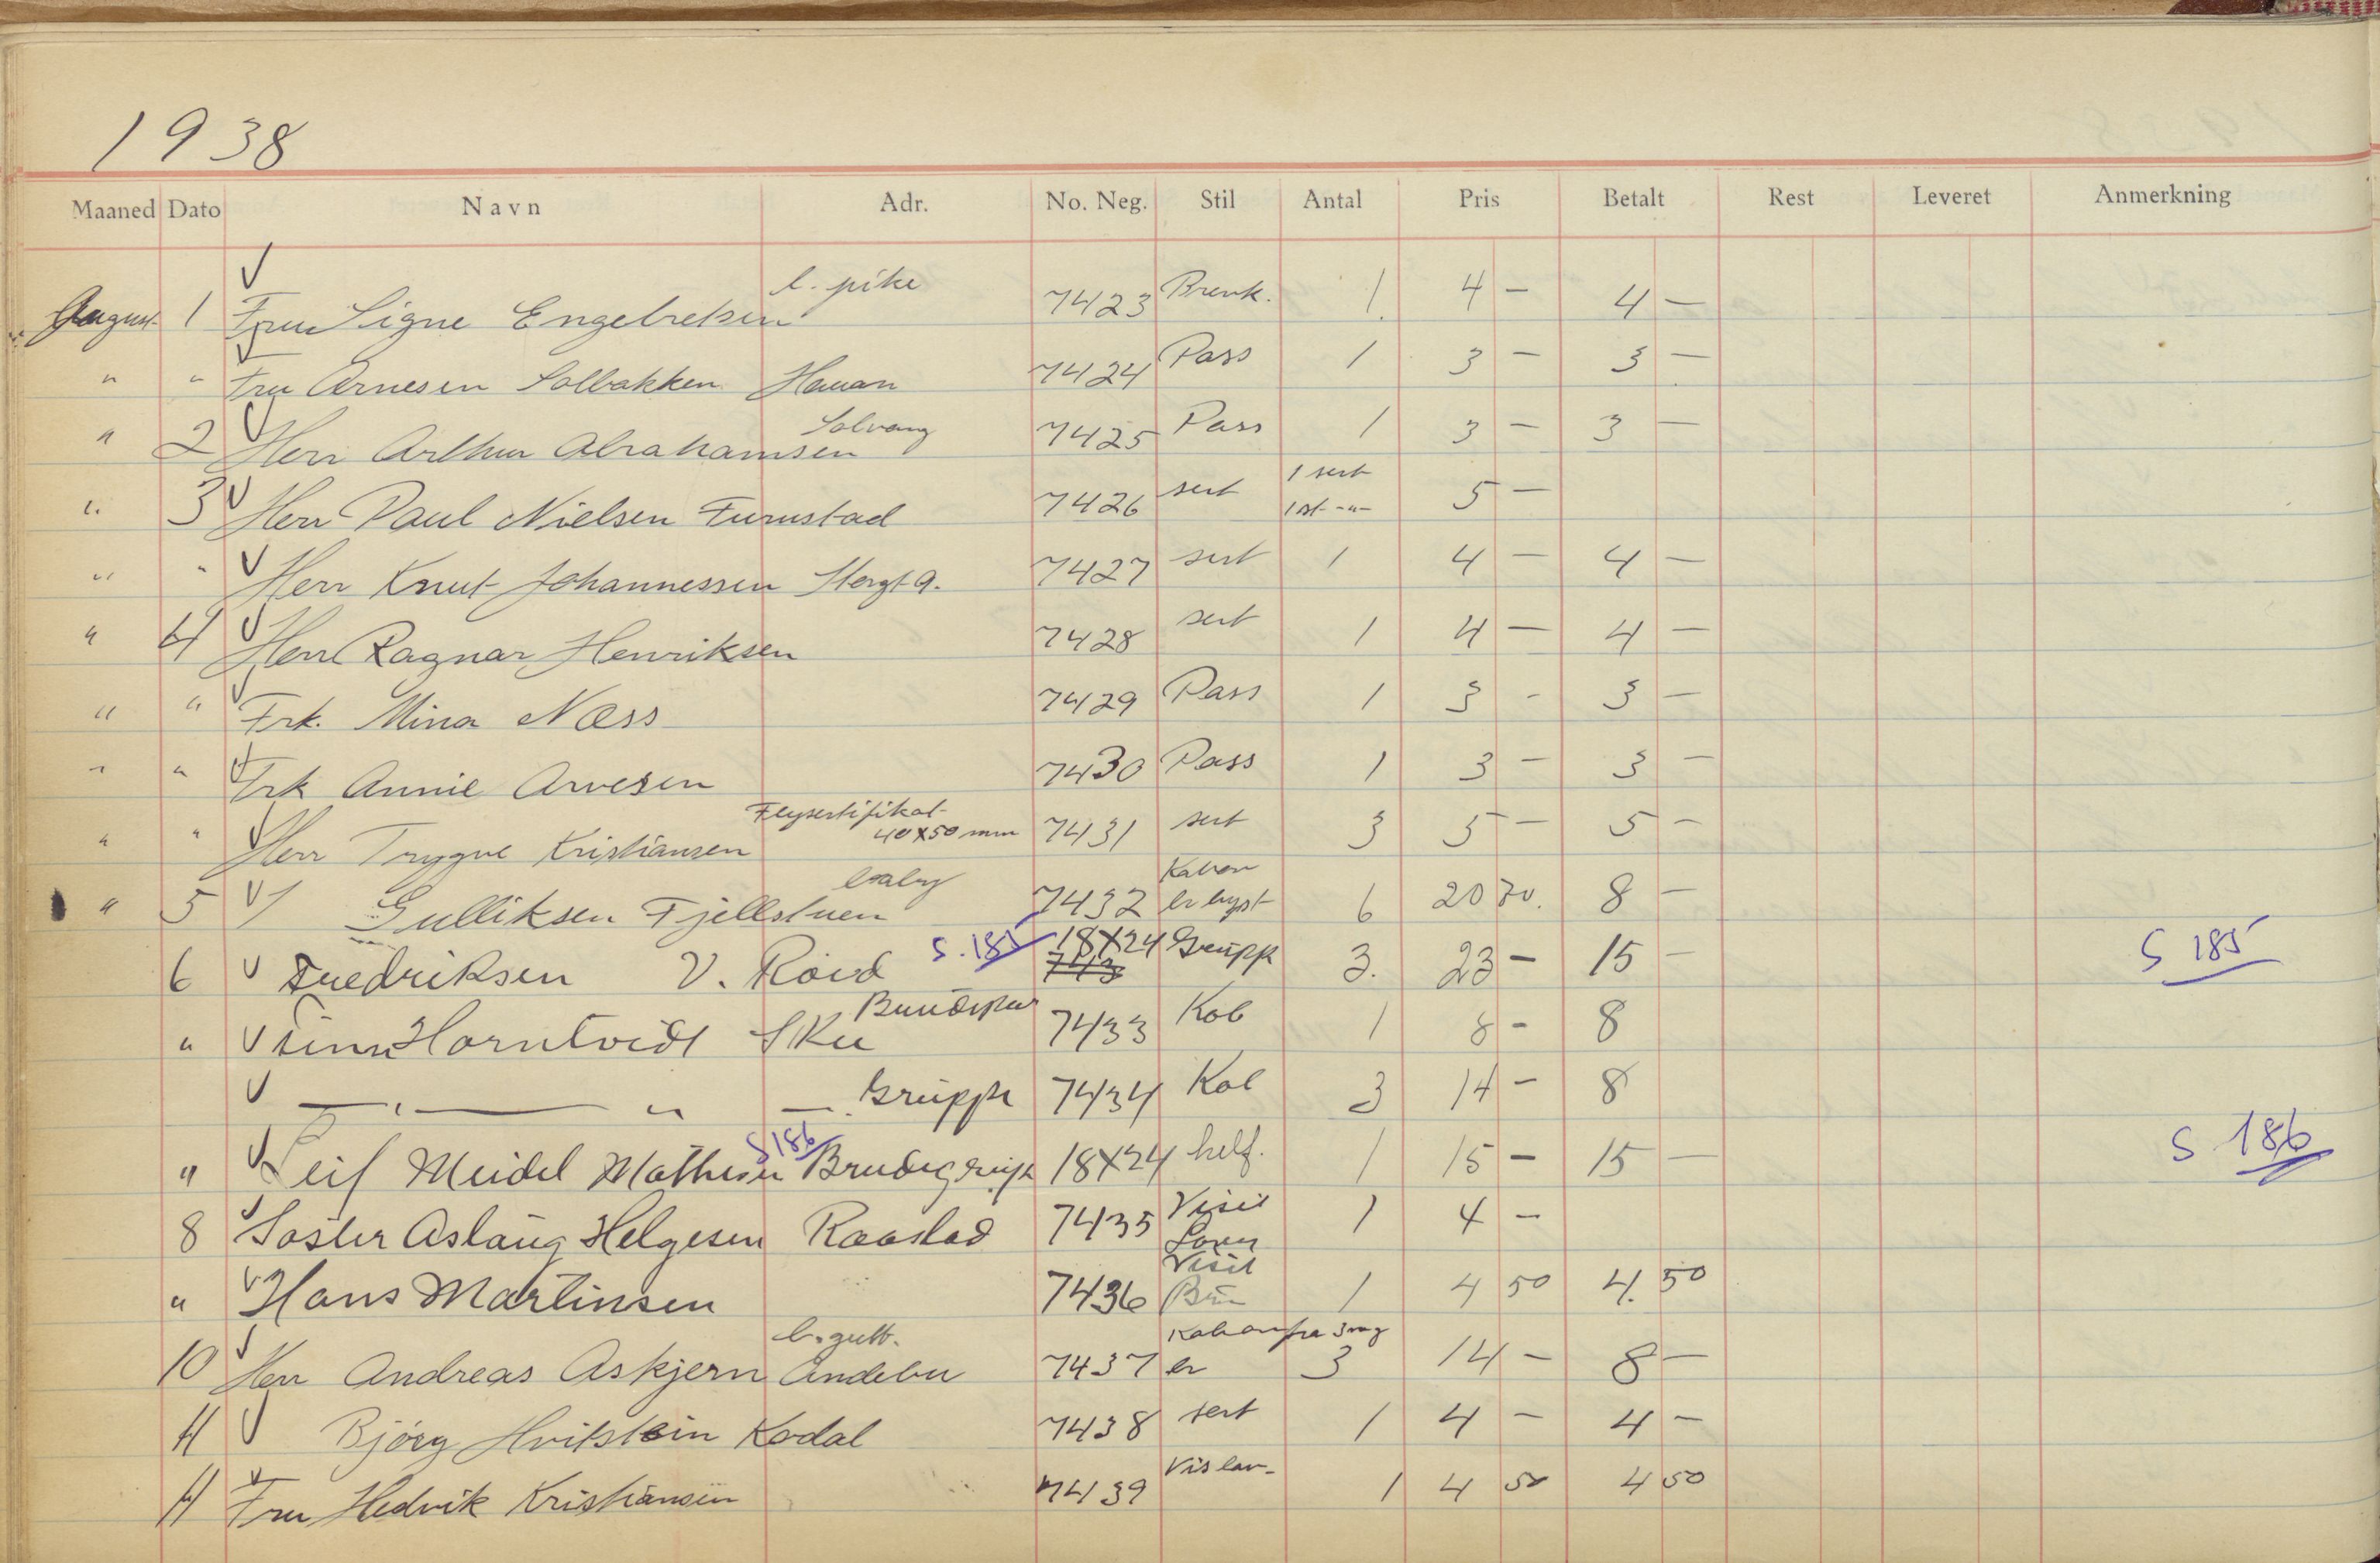 1938
Maaned Dato Navn Adr. No. Neg. Stil Antal Pris Betalt Rest Leveret Anmerkning
l. pike
August 1 Fru Signe Engebretsen 7423 Brevk. 1 4 — 4 —
" " Fru Arnesen Solbakken Hauan 7424 Pass 1 3 — 3 —
Solvang
" 2 Herr Arthur Abrahamsen 7425 Pass 1 3 — 3 —
1 sert
" 3 Herr Paul Nielsen Furustad 7426 sert 1 st -"- 5 —
" " Herr Knut Johannessen Storgt 9. 7427 sert 1 4 — 4 —
" 4 Herr Ragnar Henriksen 7428 sert 1 4 — 4 —
" " Frk. Mina Næss 7429 Pass 1 3 - 3 —
" " Frk Annie Arvesen 7430 Pass 1 3 — 3 —
Flysertifikat
40x50 mm
" " Herr Trygve Kristiansen 7431 sert 3 5 — 5 —
baby Kabon
" 5 Gulliksen Fjellstuen 7432 br byst 6 20 70. 8 —
6 Fredriksen V. Roid S. 185 18X24 743 Grupp 3. 23 — 15 — S 185
Brudepar
" Horntvedt Sku 7433 Kab 1 8 - 8
— " — " — Gruppe 7434 Kab 3 14 — 8
S 186
" Leif Meidel Mathisen Brudegrupp 18X24 helf. 1 15 — 15 — S 186
Visit
8 Søster Aslaug Helgesen Raastad 7435 1 4 —
Visit
" Hans Martinsen 7436 Br 1 4 50 4. 50
l. gutt. Kabon fra 3
10 Herr Andreas Askjern Andebu 7437 br 3 14 — 8 —
11 Bjørg Hvitstein Kodal 7438 sert 1 4 — 4 —
11 Fru Hedvik Kristiansen 7439 Vis lav- 1 4 50 4 50